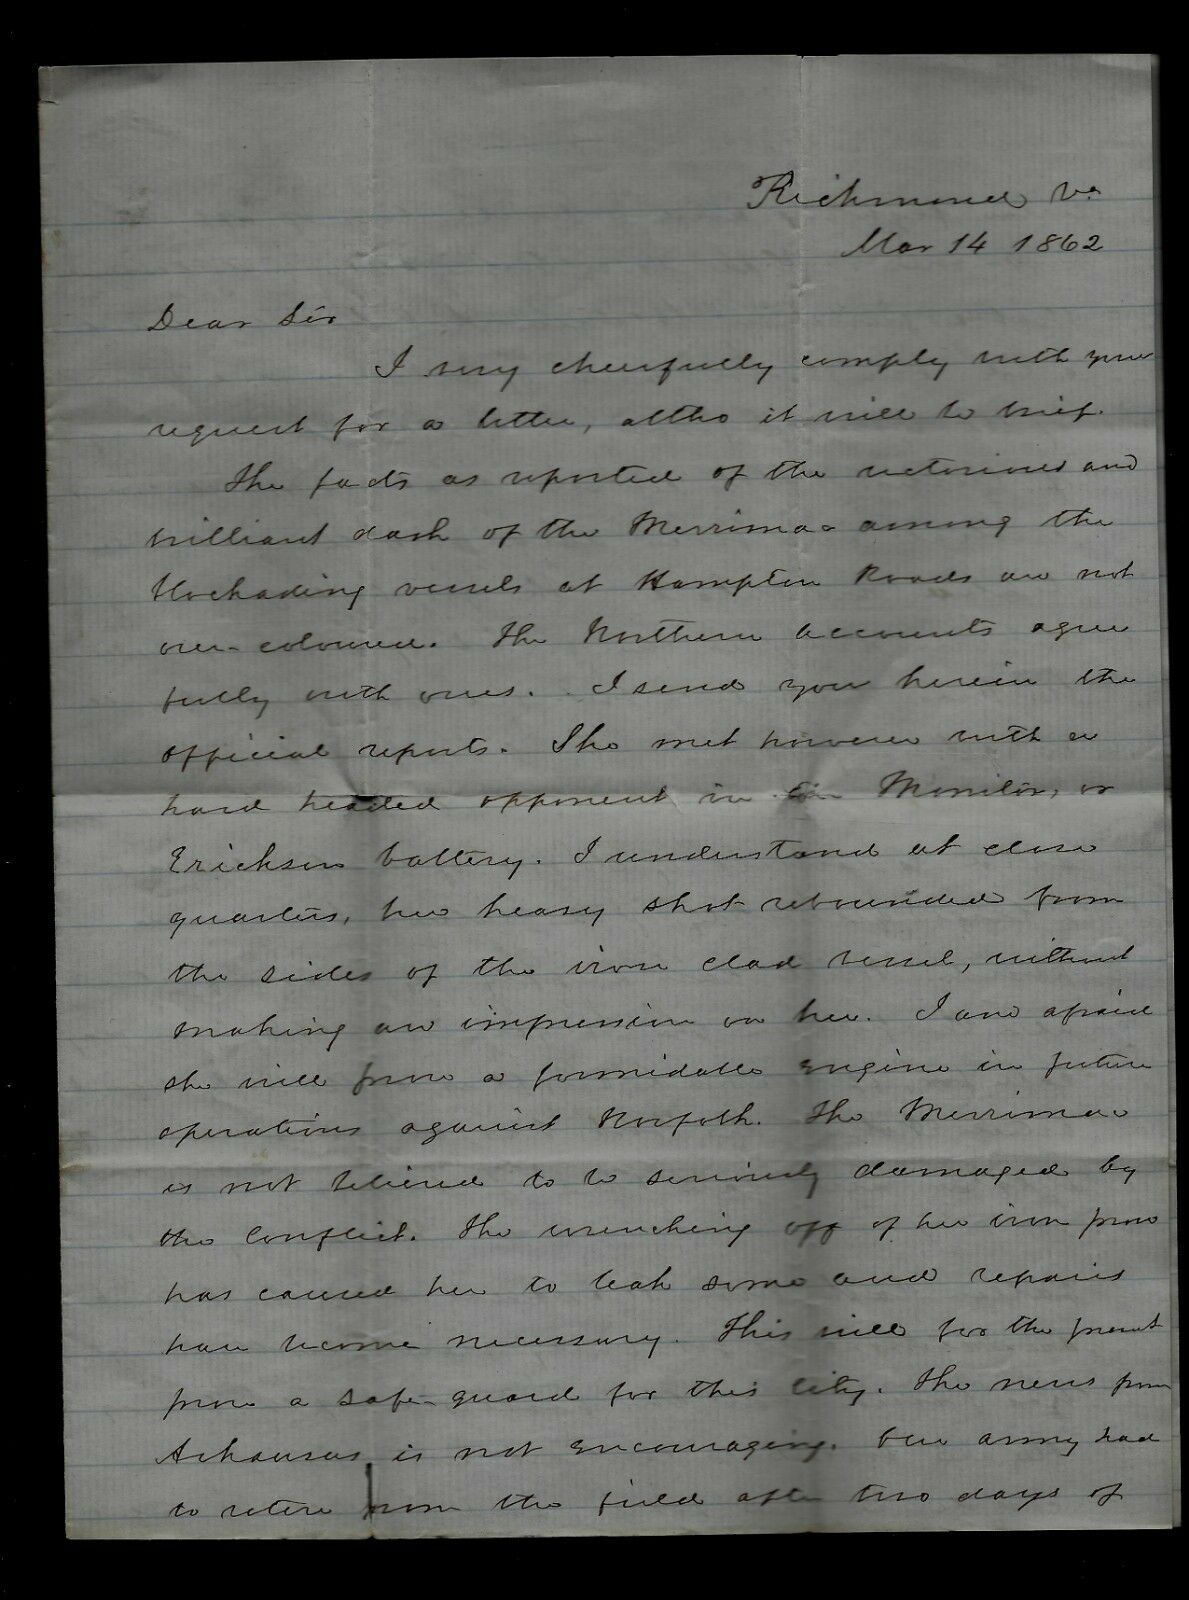 Richmond Va
Mar 14 1862
Dear Sir
I very cheerfully comply with your
request for a letter, altho it will be brief.
The facts as reported of the victorious and
brilliant dash of the Merrimac among the
blockading vessels at Hampton Roads are not
over-coloured. The Northern accounts agree
fully with ours. I send you herein the
official reports. She met however with a
hard headed opponent in the Monitor, or
Erickson battery. I understand at close
quarters, her heavy shot rebounded from
the sides of the iron clad vessel, without
making an impression on her. I am afraid
she will prove a formidable engine in future
operations against Norfolk. The Merrimac
is not believed to be seriously damaged by
the conflict. The wrenching off of her iron prow
has caused her to leak some and repairs
have become necessary. This will for the present
prove a safe-guard for this city. The news from
Arkansas is not encouraging. Our army had
to retire from the field after two days of